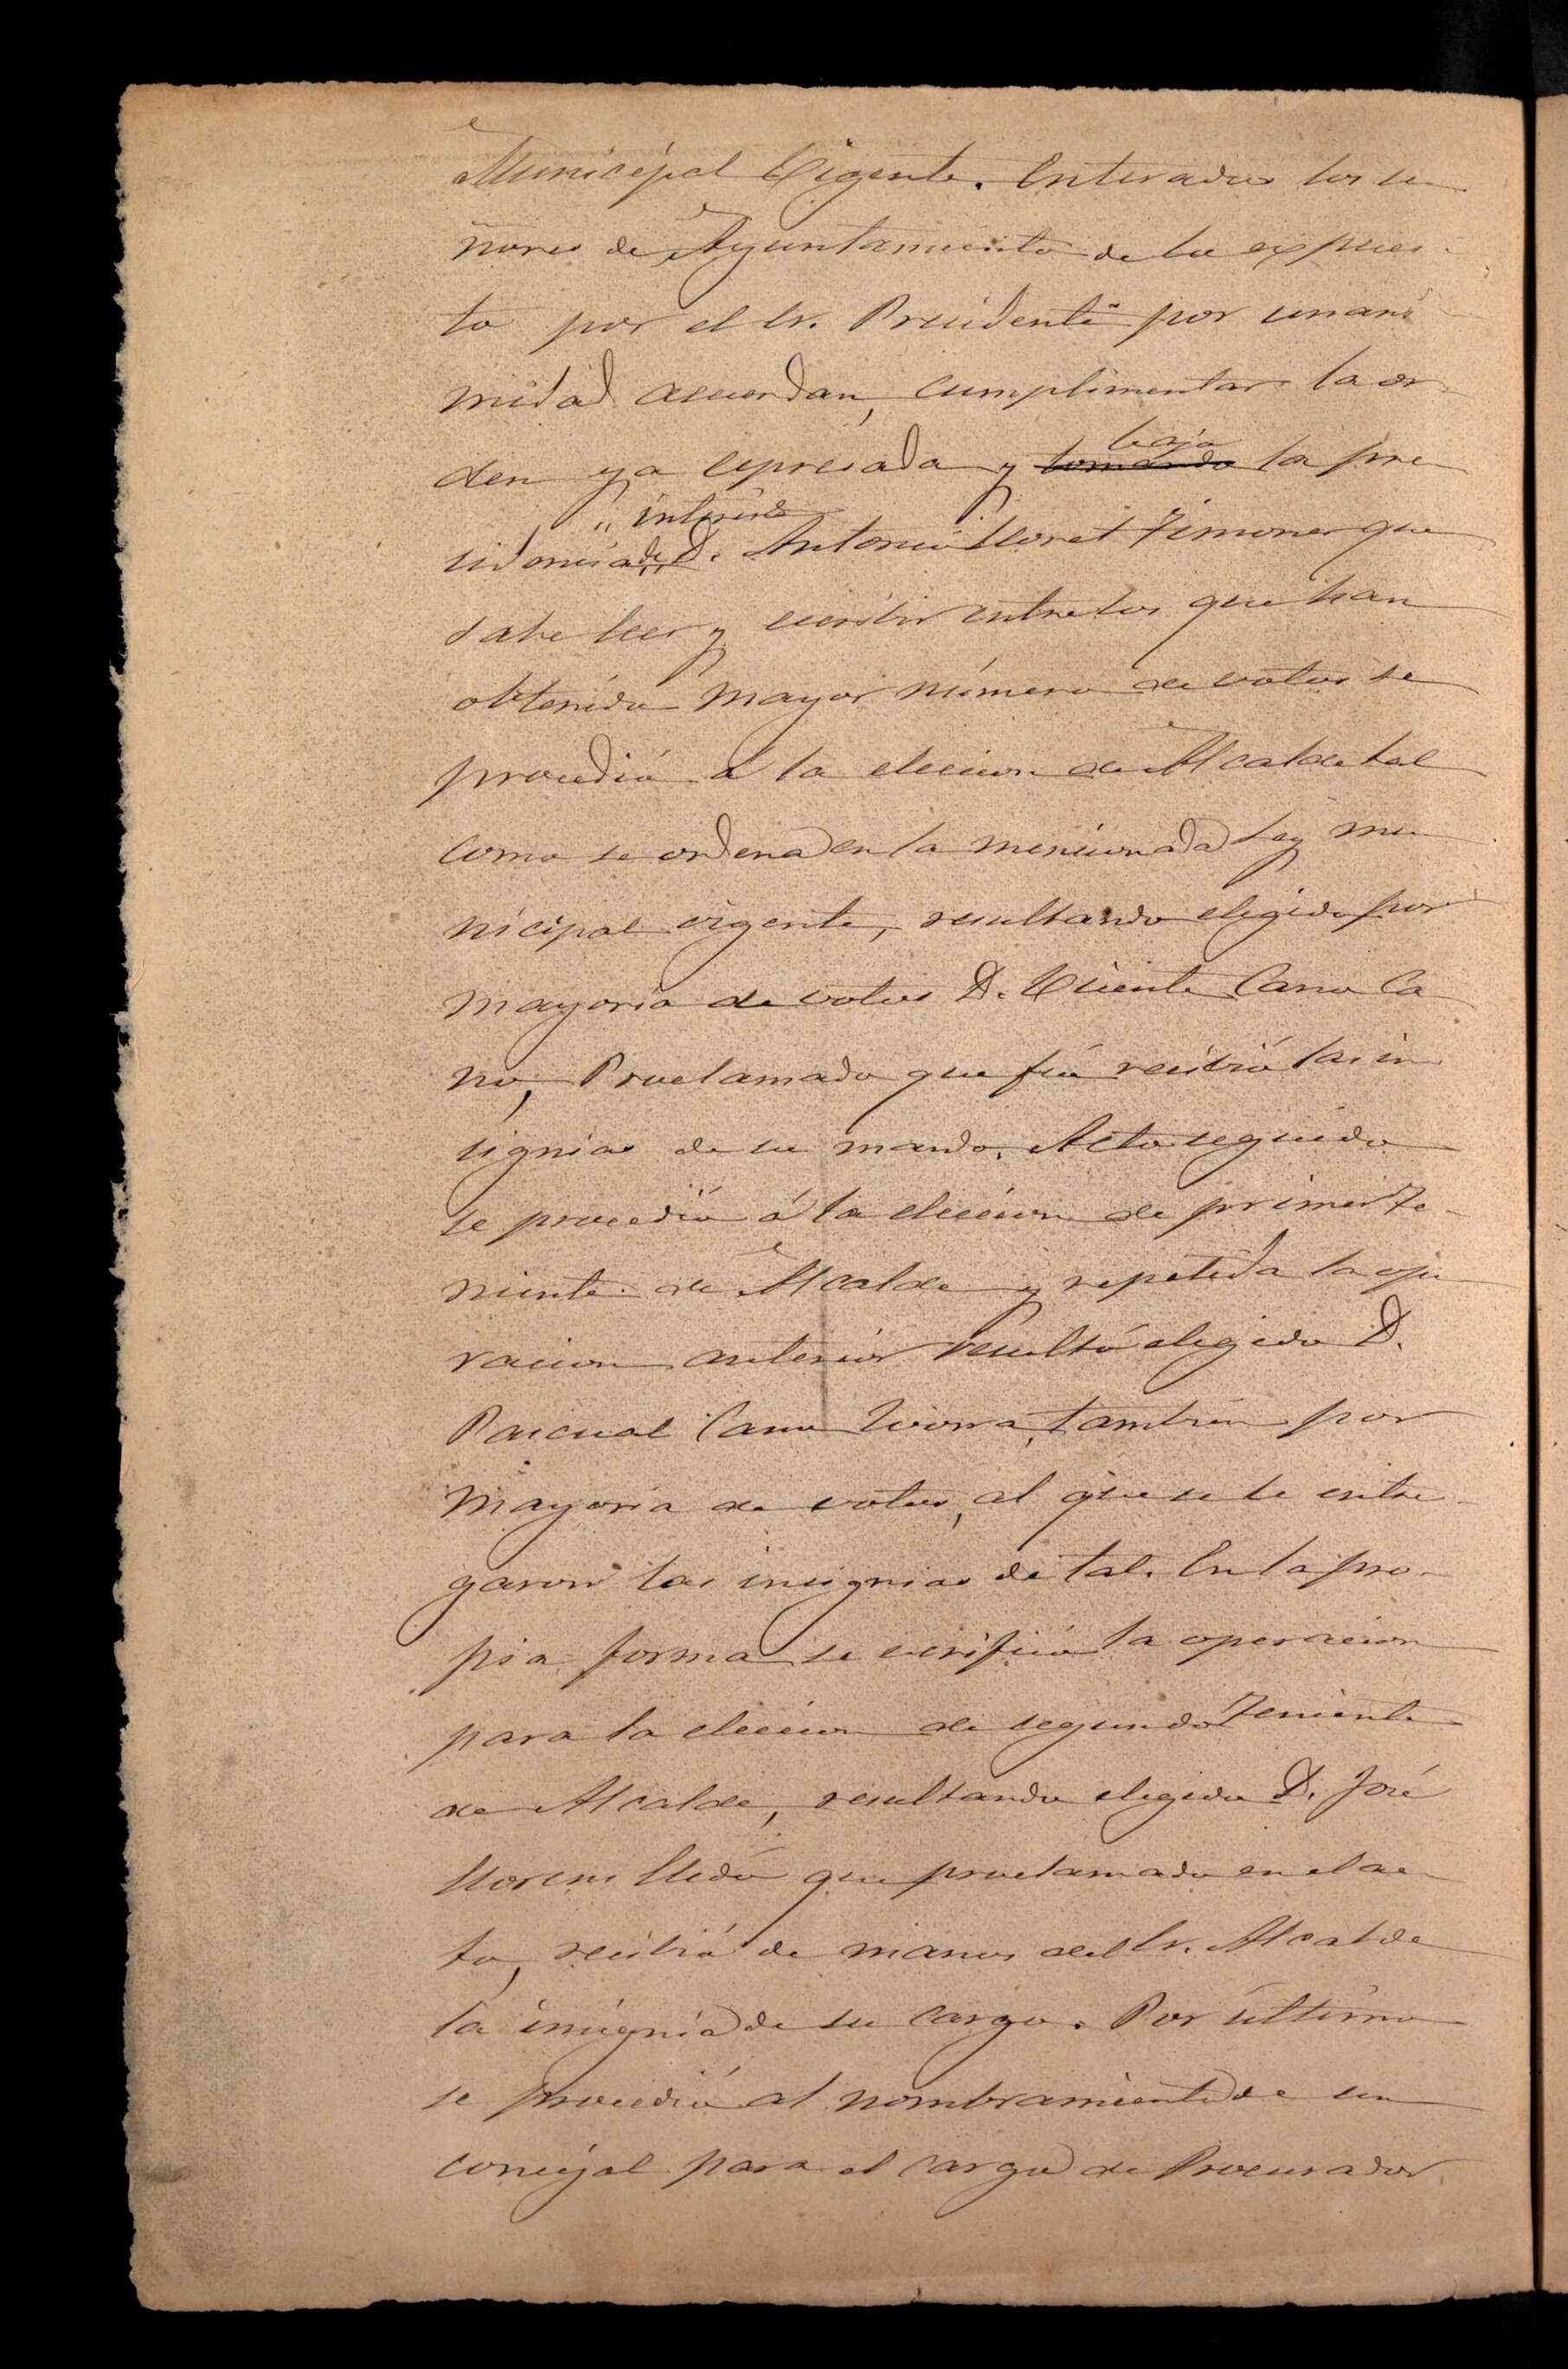 Municipal Vigente. Enterados los se-
ñores de Ayuntamiento de lo expues-
to por el Sr. Presidente por unani-
midad acuerdan, cumplimentar la or-
den ya espresada y ~~tomando~~ bajo la pre-
sidencia interina de D. Antonio Lloret Timoner que
sabe leer y escribir entre los que han
obtenido mayor número de votos se
procedió á la eleccion de Alcalde tal
como se ordena en la mencionada Ley mu-
nicipal vigente, resultando elegido por
mayoria de votos D. Vicente Cano Ca-
no, Proclamado que fué recibió las in-
signias de su mando. Acto seguido
se procedió á la eleccion de primer Te-
niente de Alcalde y repetida la ope-
racion anterior resultó elegido D.
Pascual Cano Zivorra, tambien por
mayoria de votos, al que se le entre-
garon las insignias de tal. En la pro-
pia forma se verificó la operacion
para la eleccion de segundo Teniente
de Alcalde, resultando elegido D. José
Llorens Lledó que proclamado en el ac-
to, recibió de manos del Sr. Alcalde
la insignia de su cargo. Por último
se procedió al nombramiento de un
concejal para el cargo de Procurador